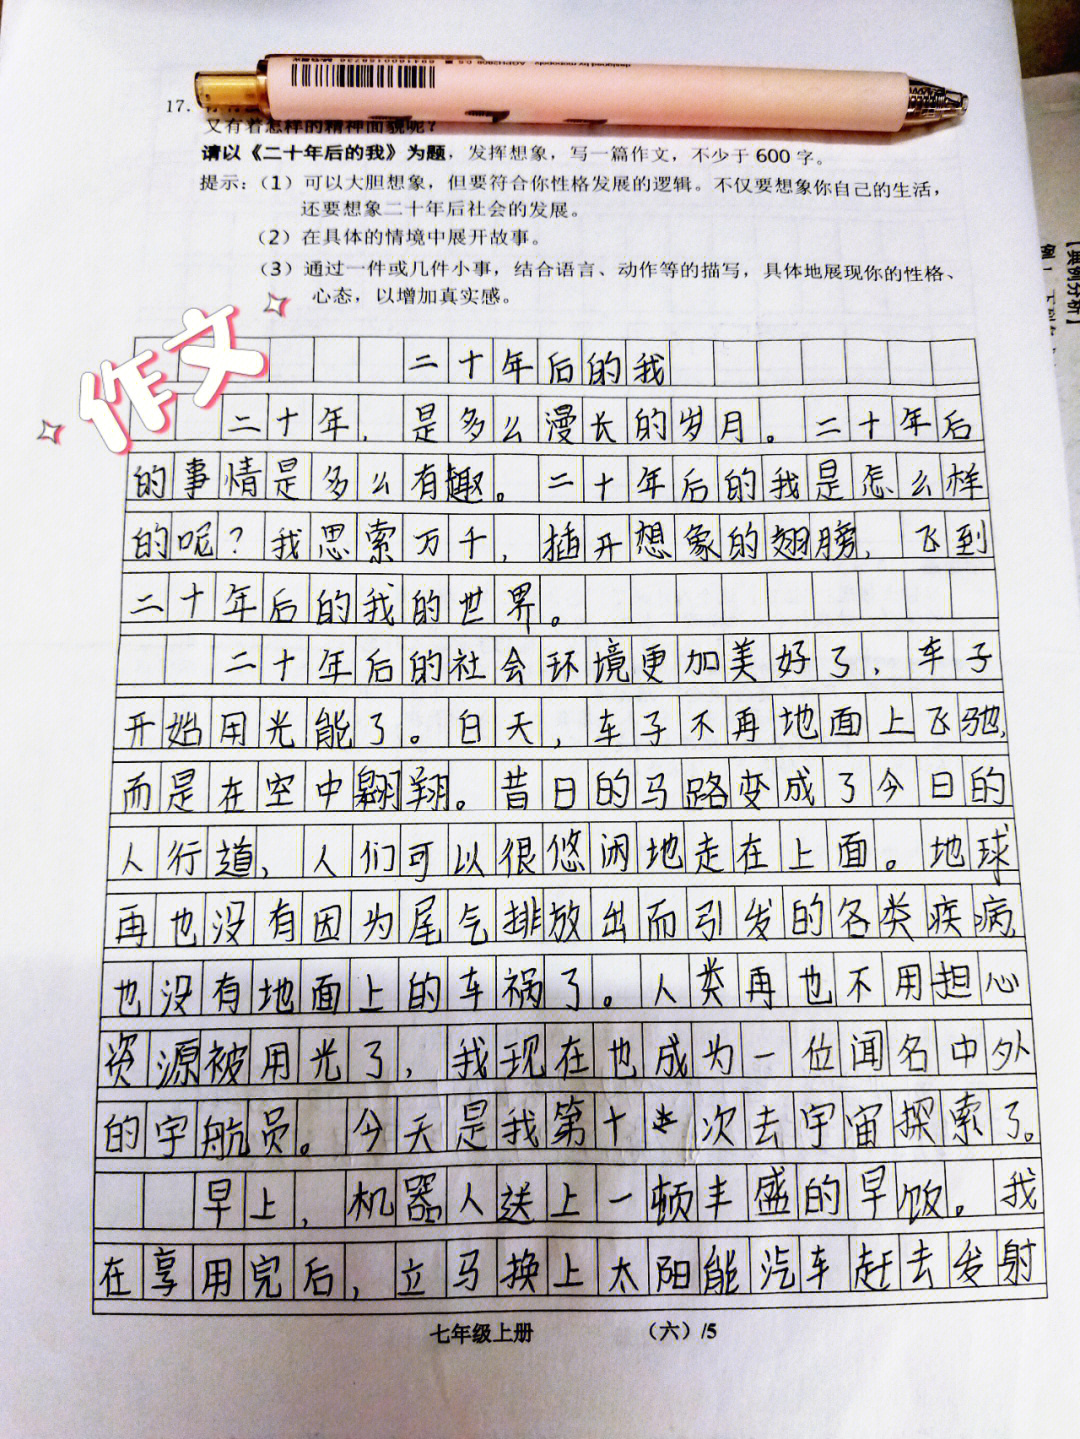 17.
又有着怎样的精神面貌呢？
请以《二十年后的我》为题，发挥想象，写一篇作文，不少于 600 字。
提示：（1）可以大胆想象，但要符合你性格发展的逻辑。不仅要想象你自己的生活，
还要想象二十年后社会的发展。
（2）在具体的情境中展开故事。
（3）通过一件或几件小事，结合语言、动作等的描写，具体地展现你的性格、
心态，以增加真实感。
作文
二十年后的我
二十年，是多么漫长的岁月。二十年后
的事情是多么有趣。二十年后的我是怎么样
的呢？我思索万千，插开想象的翅膀，飞到
二十年后的我的世界。
二十年后的社会环境更加美好了，车子
开始用光能了。白天，车子不再地面上飞驰，
而是在空中翱翔。昔日的马路变成了今日的
人行道，人们可以很悠闲地走在上面。地球
再也没有因为尾气排放出而引发的各类疾病
也没有地面上的车祸了。人类再也不用担心
资源被用光了，我现在也成为一位闻名中外
的宇航员。今天是我第十*次去宇宙探索了。
早上，机器人送上一顿丰盛的早饭。我
在享用完后，立马换上太阳能汽车赶去发射
七年级上册
（六）/5
【案例分析】
例一